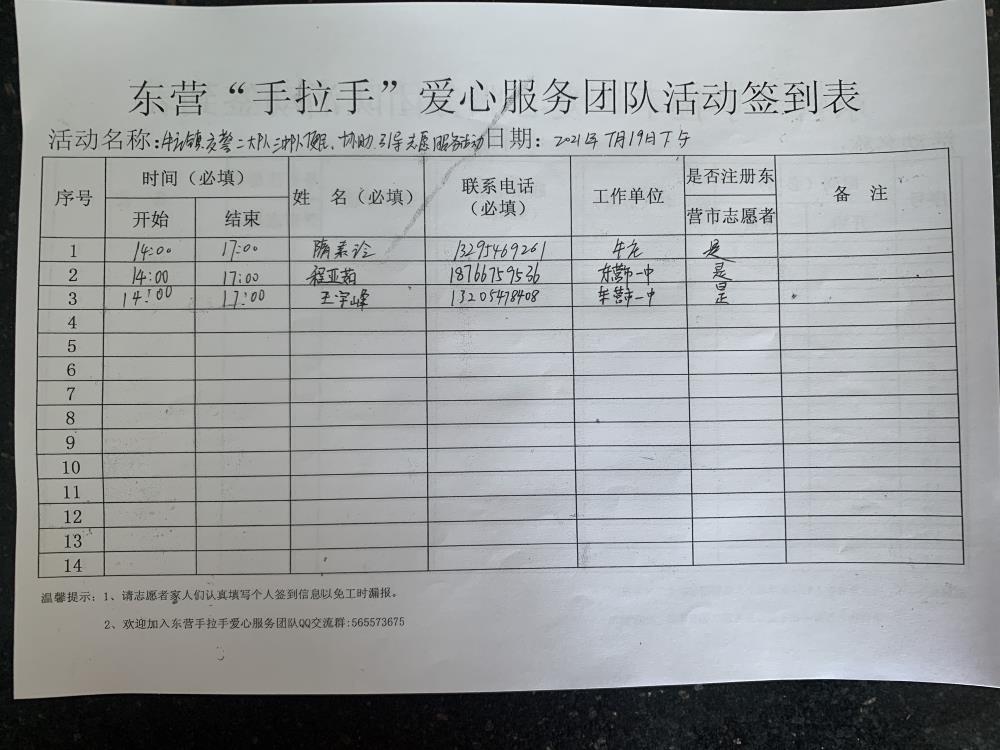 东营“手拉手”爱心服务团队活动签到表
活动名称:牛庄镇交警二大队 便民、协助引导志愿服务活动 日期: 2021年7月19日下午
序号 时间（必填） 姓 名（必填） 联系电话（必填） 工作单位 是否注册东营市志愿者 备 注
开始 结束
1 14:00 17:00 隋素 13295469261 牛庄 是
2 14:00 17:00 程亚茹 18766759536 东营市一中 是
3 14:00 17:00 王宇峰 13205478408 东营市一中 是
4
5
6
7
8
9
10
11
12
13
14
温馨提示：1、请志愿者家人们认真填写个人签到信息以免工时漏报。
2、欢迎加入东营手拉手爱心服务团队QQ交流群:565573675